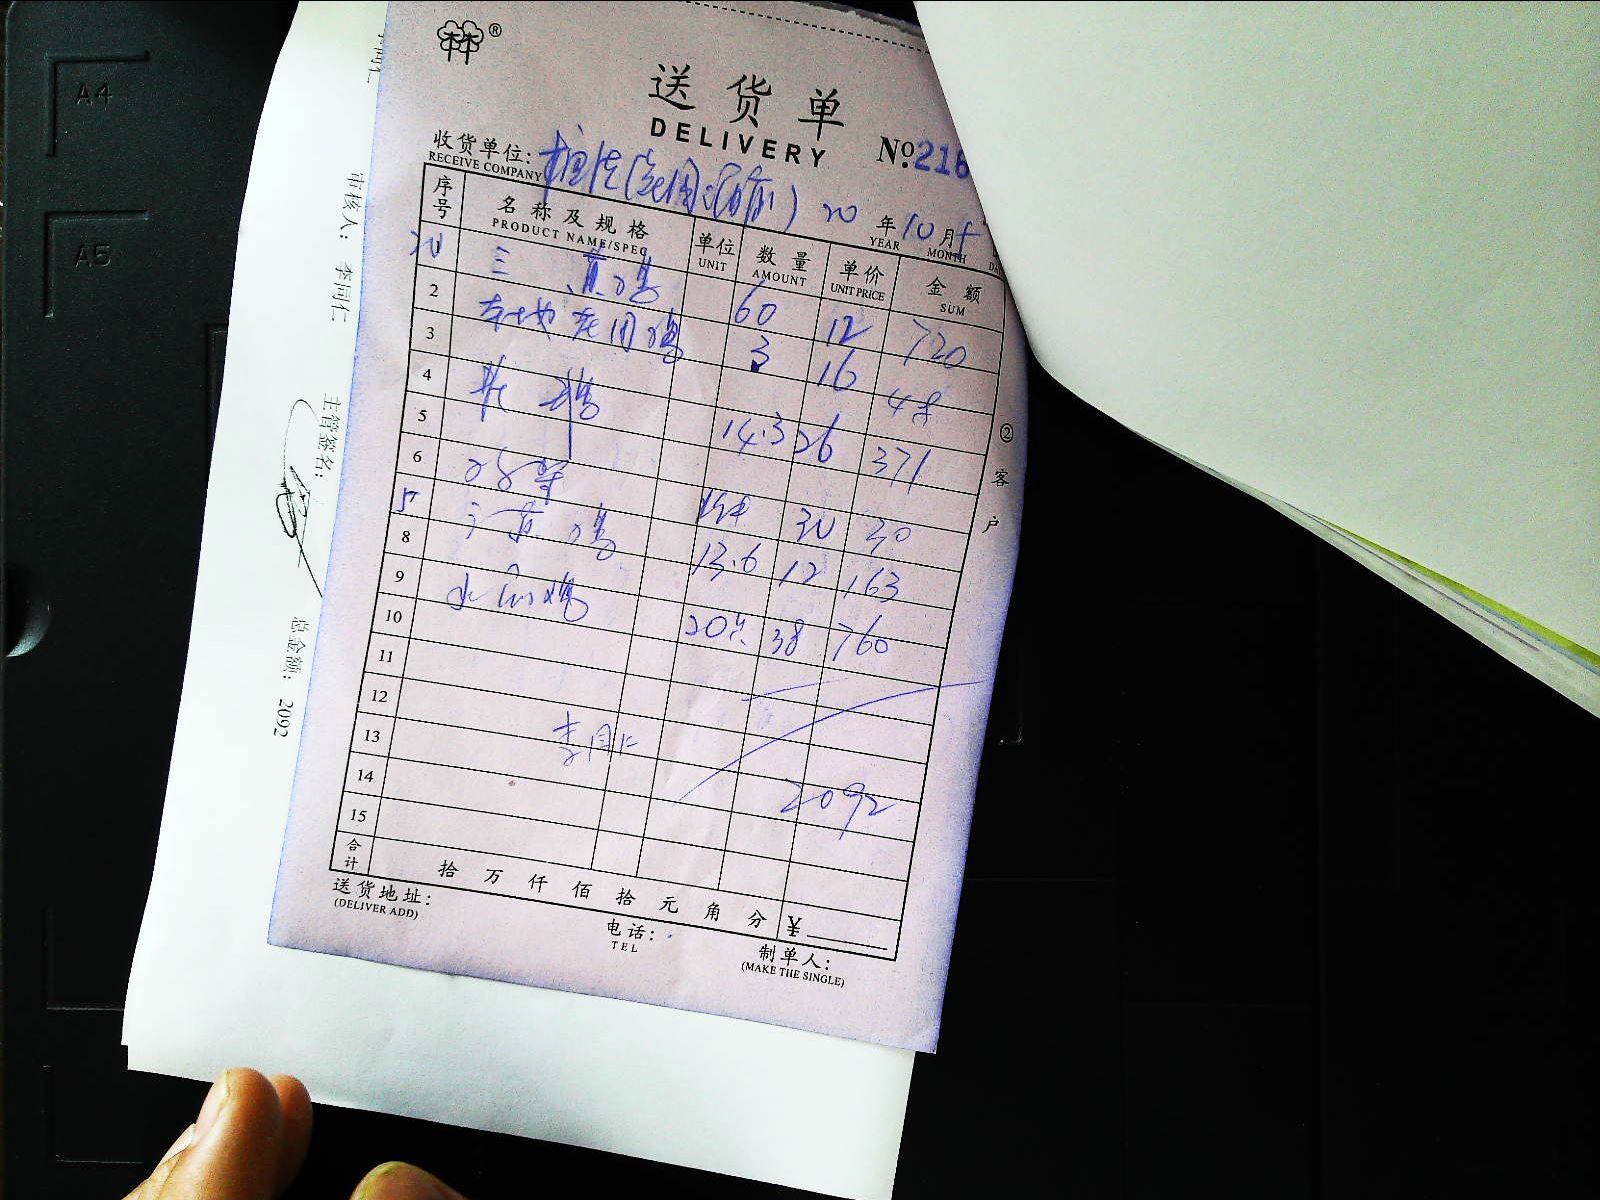 A4
A5
审核人: 李同仁
主管签名:
总金额: 2092
®
送货单
DELIVERY
№216
收货单位:
RECEIVE COMPANY
20 年 10 月
YEAR MONTH
序号 名称及规格 单位 数量 单价 金额
PRODUCT NAME/SPEC UNIT AMOUNT UNIT PRICE SUM
三黄鸡 60 12 720
2
本地 鸡 3 16 48
3
4
14.3 26 371
5
6
30 30
三黄鸡 13.6 12 163
8
9
20 38 760
10
11
12
李同仁
13
2092
14
15
合计 拾 万 仟 佰 拾 元 角 分 ¥
送货地址:
(DELIVER ADD)
电话:
TEL
制单人:
(MAKE THE SINGLE)
②客户